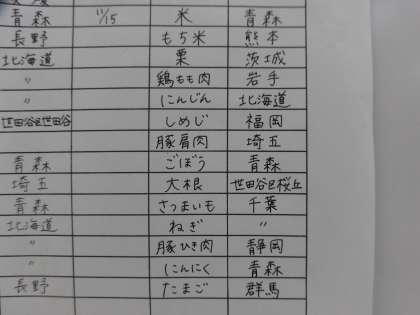 青森 11/15 米 青森
長野 もち米 熊本
北海道 栗 茨城
〃 鶏もも肉 岩手
〃 にんじん 北海道
世田谷区世田谷 しめじ 福岡
豚肩肉 埼玉
青森 ごぼう 青森
埼玉 大根 世田谷区桜丘
青森 さつまいも 千葉
北海道 ねぎ 〃
〃 豚ひき肉 静岡
〃 にんにく 青森
長野 たまご 群馬